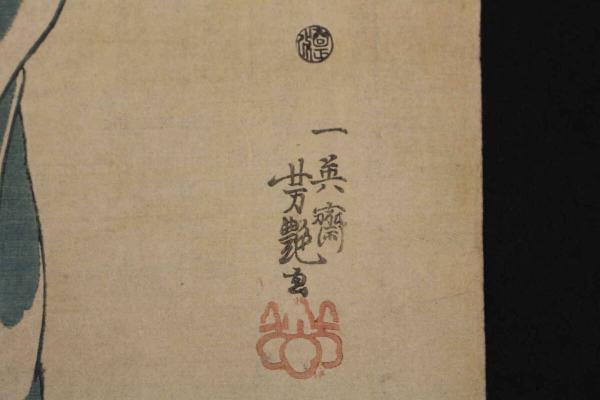 一英齋
芳艶画